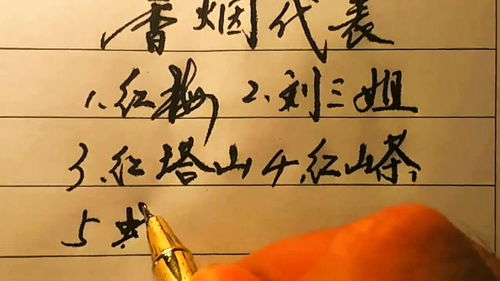 香烟代表
1.红梅 2.刘三姐
3.红塔山 4.红山茶
5